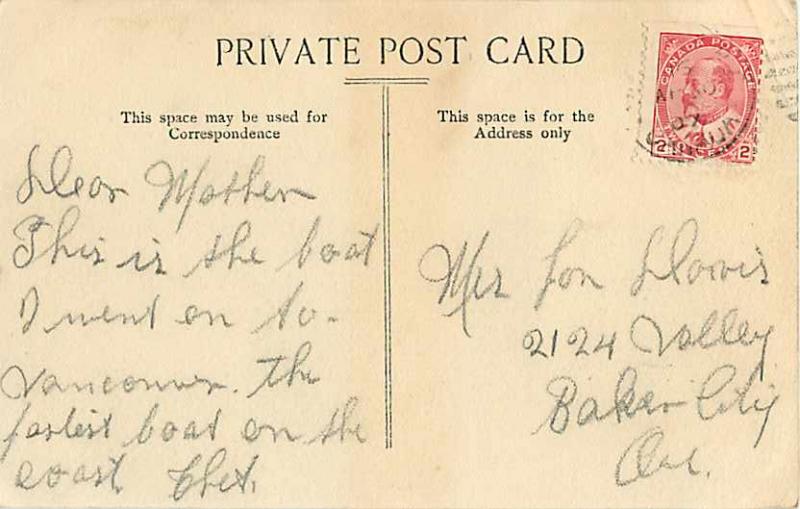 PRIVATE POST CARD
This space may be used for
Correspondence
This space is for the
Address only
CANADA POSTAGE
2 CENTS 2
Dear Mother
This is the boat
I went on to-
Vancouver. the
fastest boat on the
coast Chet.
Mrs Lon Davis
2124 Valley
Baker City
Ore.